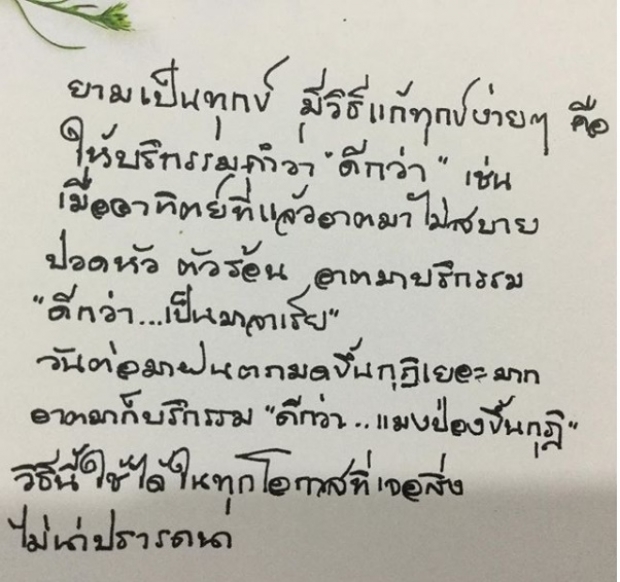 ยามเป็นทุกข์ มีวิธีแก้ทุกข์ง่ายๆ คือ
ให้บริกรรมคำว่า "ดีกว่า" เช่น
เมื่ออาทิตย์ที่แล้วอาตมาไม่สบาย
ปวดหัว ตัวร้อน อาตมาบริกรรม
"ดีกว่า...เป็นมาลาเรีย"
วันต่อมาฝนตกมดขึ้นกุฏิเยอะมาก
อาตมาก็บริกรรม "ดีกว่า...แมงป่องขึ้นกุฏิ"
วิธีนี้ใช้ได้ในทุกโอกาสที่เจอสิ่ง
ไม่น่าปรารถนา